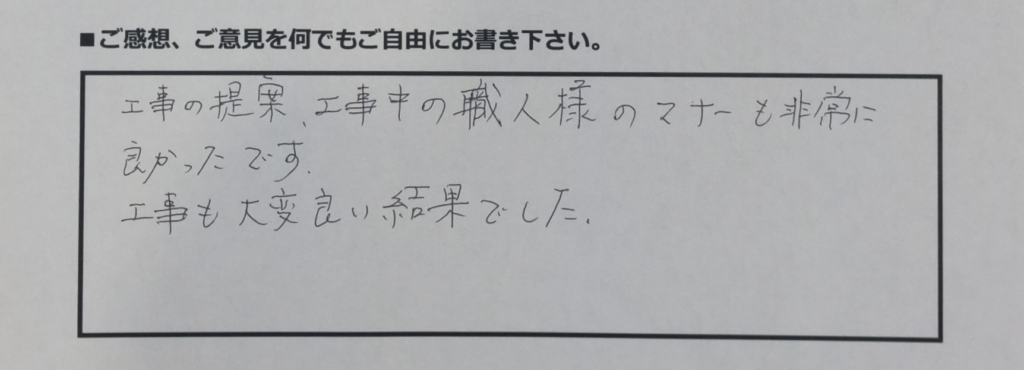 ■ご感想、ご意見を何でもご自由にお書き下さい。
工事の提案、工事中の職人様のマナーも非常に
良かったです.
工事も大変良い結果でした.